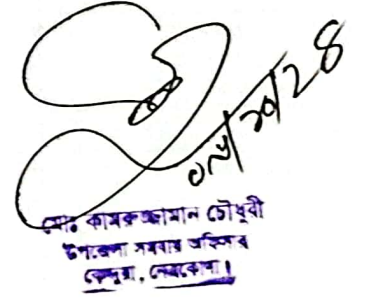 ০৯/১০/২৪
মোঃ কামরুজ্জামান চৌধুরী
উপজেলা সমবায় অফিসার
কেন্দুয়া, নেত্রকোণা।